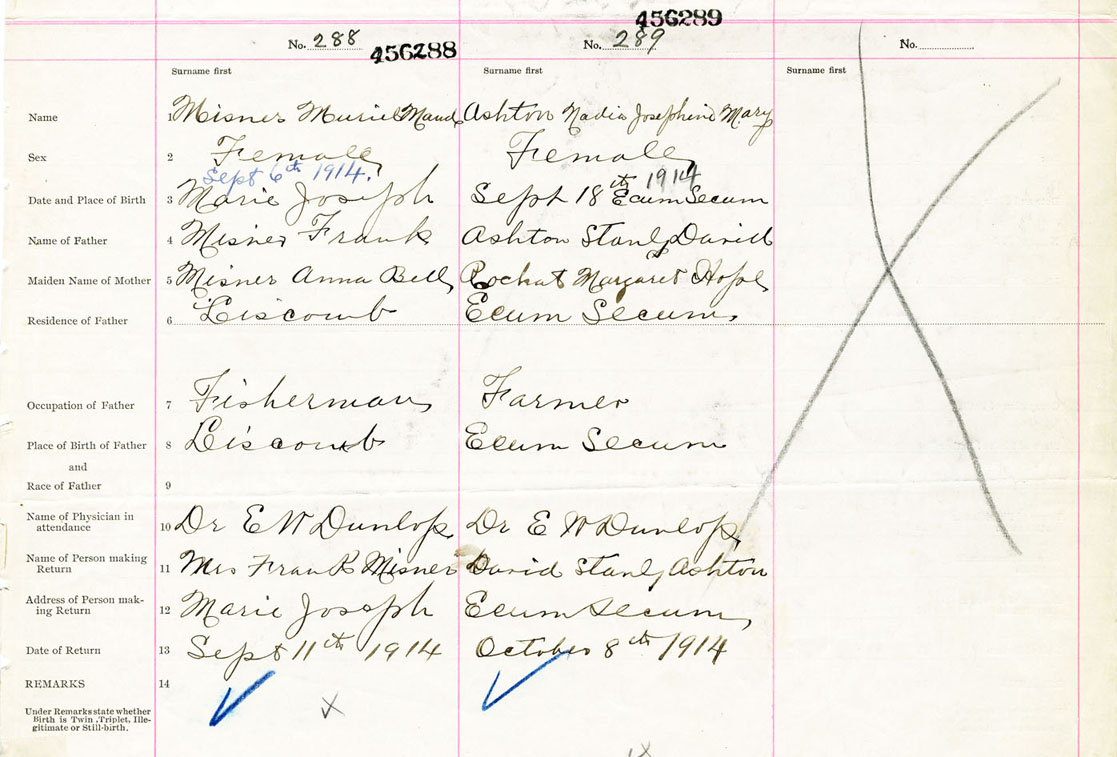 456289
No. 288 456288 No. 289 No.
Surname first Surname first Surname first
Name 1 Misner Muriel Maud Ashton Nadia Josephine Mary
Sex 2 Female Female
Sept 6th 1914.
Date and Place of Birth 3 Marie Joseph Sept 18th 1914 Ecum Secum
Name of Father 4 Misner Frank Ashton Stanly David
Maiden Name of Mother 5 Misner Anna Bell Rochat Margaret Hope
Residence of Father 6 Liscomb Ecum Secum
Occupation of Father 7 Fisherman Farmer
Place of Birth of Father 8 Liscomb Ecum Secum
and
Race of Father 9
Name of Physician in
attendance 10 Dr E W Dunlop Dr E W Dunlop
Name of Person making
Return 11 Mrs Frank Misner David Stanly Ashton
Address of Person mak-
ing Return 12 Marie Joseph Ecum Secum
Date of Return 13 Sept 11th 1914 October 8th 1914
REMARKS 14
Under Remarks state whether
Birth is Twin, Triplet, Ille-
gitimate or Still-birth.